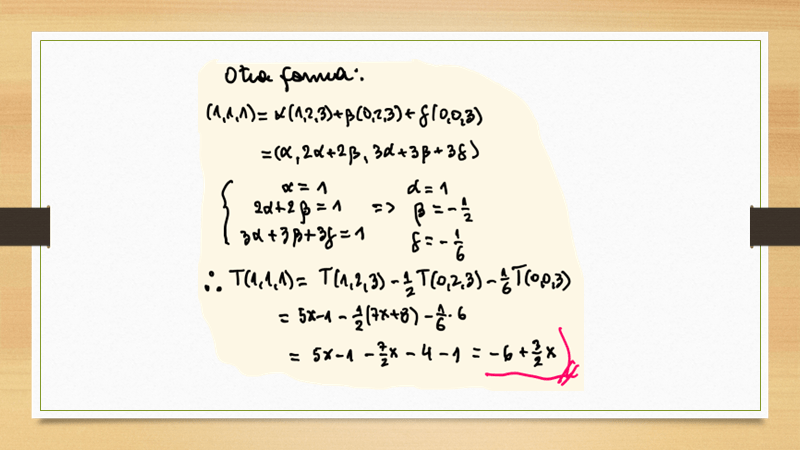 Otra forma:
(1,1,1) = α(1,2,3) + β(0,2,3) + γ(0,0,3)
= (α, 2α+2β, 3α+3β+3γ)
α = 1
2α+2β = 1 => 
3α+3β+3γ = 1
α = 1
β = -1/2
γ = -1/6
∴ T(1,1,1) = T(1,2,3) - 1/2 T(0,2,3) - 1/6 T(0,0,3)
= 5x-1 - 1/2(7x+8) - 1/6 · 6
= 5x-1 - 7/2x - 4 - 1 = -6 + 3/2x